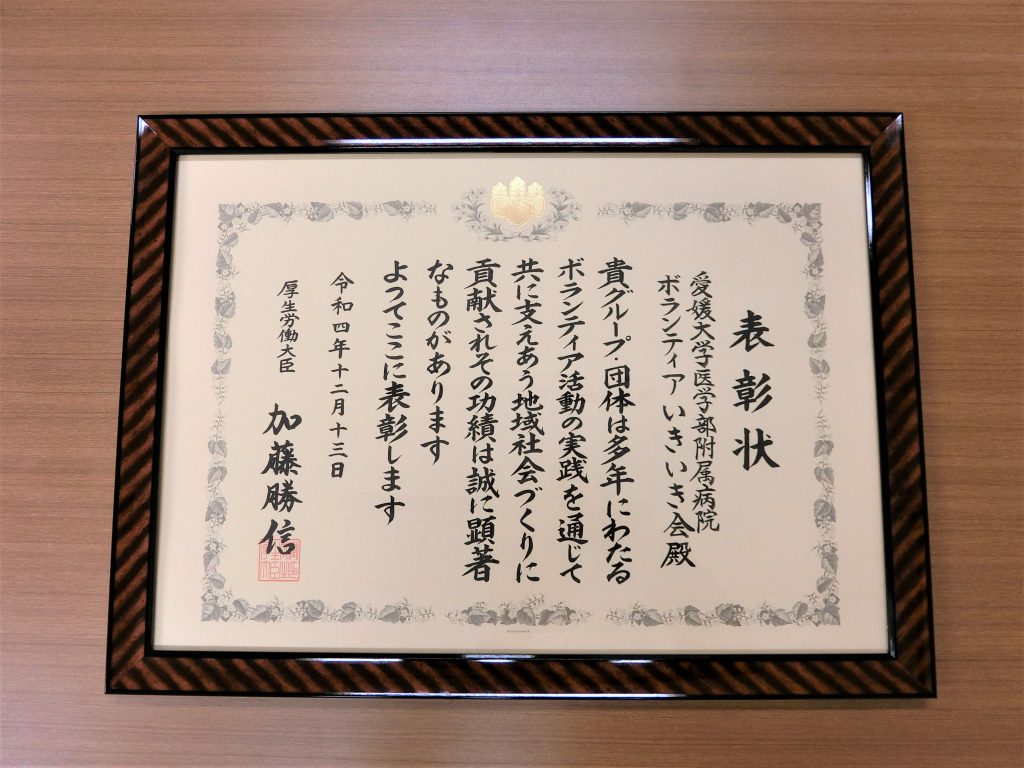 表彰状
愛媛大学医学部附属病院
ボランティアいきいき会殿
貴グループ・団体は多年にわたる
ボランティア活動の実践を通じて
共に支えあう地域社会づくりに
貢献されその功績は誠に顕著
なものがあります
よつてここに表彰します
令和四年十二月十三日
厚生労働大臣 加藤勝信